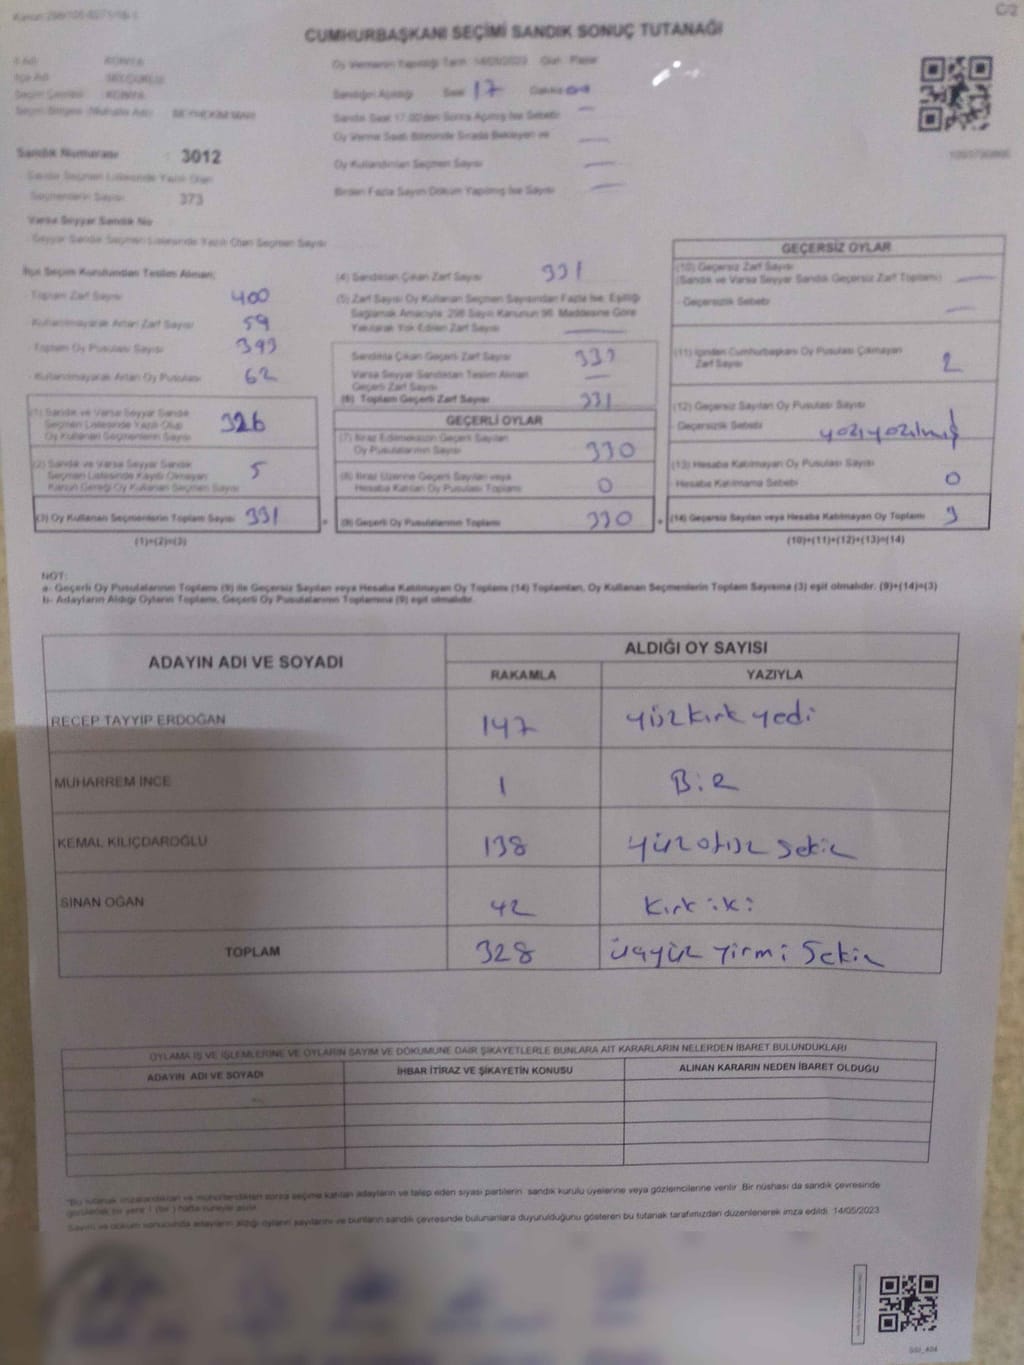 C/2
CUMHURBAŞKANI SEÇİMİ SANDIK SONUÇ TUTANAĞI
İl Adı : KONYA
İlçe Adı : SELÇUKLU
Seçim Çevresi : KONYA
Sandık Numarası : 3012
Sandık Seçmen Listesinde Yazılı Olan
Seçmenlerin Sayısı : 373
Varsa Seyyar Sandık No
Seyyar Sandık Seçmen Listesinde Yazılı Olan Seçmen Sayısı
Oy Vermenin Yapıldığı Tarih : 14/05/2023 Gün : Pazar
Sandığın Açıldığı Saat 17 Dakika
Sandık Saat 17.00'den Sonra Açılmış İse Sebebi —
Oy Verme Saati Bitiminde Sırada Bekleyen ve —
Oy Kullandırılan Seçmen Sayısı —
Birden Fazla Sayım Döküm Yapılmış İse Sayısı —
İlçe Seçim Kurulundan Teslim Alınan;
Toplam Zarf Sayısı 400
Kullanılmayarak Artan Zarf Sayısı 59
Toplam Oy Pusulası Sayısı 393
Kullanılmayarak Artan Oy Pusulası 62
(1) Sandık ve Varsa Seyyar Sandık
Seçmen Listesinde Yazılı Olup
Oy Kullanan Seçmenlerin Sayısı 326
(2) Sandık ve Varsa Seyyar Sandık
Seçmen Listesinde Kayıtlı Olmayan
Kanun Gereği Oy Kullanan Seçmen Sayısı 5
(3) Oy Kullanan Seçmenlerin Toplam Sayısı 331
(1)+(2)=(3)
(4) Sandıktan Çıkan Zarf Sayısı 331
(5) Zarf Sayısı Oy Kullanan Seçmen Sayısından Fazla İse, Eşitliği
Sağlamak Amacıyla; 298 Sayılı Kanunun 98. Maddesine Göre
Yakılarak Yok Edilen Zarf Sayısı —
Sandıkta Çıkan Geçerli Zarf Sayısı
Varsa Seyyar Sandıktan Teslim Alınan —
Geçerli Zarf Sayısı
(6) Toplam Geçerli Zarf Sayısı 331
GEÇERLİ OYLAR
(7) İtiraz Edilmeksizin Geçerli Sayılan
Oy Pusulalarının Sayısı 330
(8) İtiraz Üzerine Geçerli Sayılan veya
Hesaba Katılan Oy Pusulası Toplamı 0
= (9) Geçerli Oy Pusulalarının Toplamı 330
GEÇERSİZ OYLAR
(10) Geçersiz Zarf Sayısı
(Sandık ve Varsa Seyyar Sandık Geçersiz Zarf Toplamı) —
Geçersizlik Sebebi —
(11) İçinden Cumhurbaşkanı Oy Pusulası Çıkmayan
Zarf Sayısı 2
(12) Geçersiz Sayılan Oy Pusulası Sayısı
Geçersizlik Sebebi yazı yazılmış
(13) Hesaba Katılmayan Oy Pusulası Sayısı 0
Hesaba Katılmama Sebebi
+ (14) Geçersiz Sayılan veya Hesaba Katılmayan Oy Toplamı 3
(10)+(11)+(12)+(13)=(14)
NOT:
a- Geçerli Oy Pusulalarının Toplamı (9) ile Geçersiz Sayılan veya Hesaba Katılmayan Oy Toplamı (14) Toplamları, Oy Kullanan Seçmenlerin Toplam Sayısına (3) eşit olmalıdır. (9)+(14)=(3)
b- Adayların Aldığı Oyların Toplamı, Geçerli Oy Pusulalarının Toplamına (9) eşit olmalıdır.
ADAYIN ADI VE SOYADI
ALDIĞI OY SAYISI
RAKAMLA YAZIYLA
RECEP TAYYİP ERDOĞAN 147 yüzkırk yedi
MUHARREM İNCE 1 BiR
KEMAL KILIÇDAROĞLU 138 yüz otuz sekiz
SİNAN OĞAN 42 Kırk iki
TOPLAM 328 üçyüz yirmi sekiz
OYLAMA İŞ VE İŞLEMLERİNE VE OYLARIN SAYIM VE DÖKÜMÜNE DAİR ŞİKAYETLERLE BUNLARA AİT KARARLARIN NELERDEN İBARET BULUNDUKLARI
ADAYIN ADI VE SOYADI İHBAR İTİRAZ VE ŞİKAYETİN KONUSU ALINAN KARARIN NEDEN İBARET OLDUĞU
*Bu tutanak imzalandıktan ve mühürlendikten sonra seçime katılan adayların ve talep eden siyasi partilerin sandık kurulu üyelerine veya gözlemcilerine verilir. Bir nüshası da sandık çevresinde
görülecek bir yere 1 (bir) hafta süreyle asılır.
Sayım ve döküm sonucunda adayların aldığı oyların sayılarını ve bunların sandık çevresinde bulunanlara duyurulduğunu gösteren bu tutanak tarafımızdan düzenlenerek imza edildi. 14/05/2023